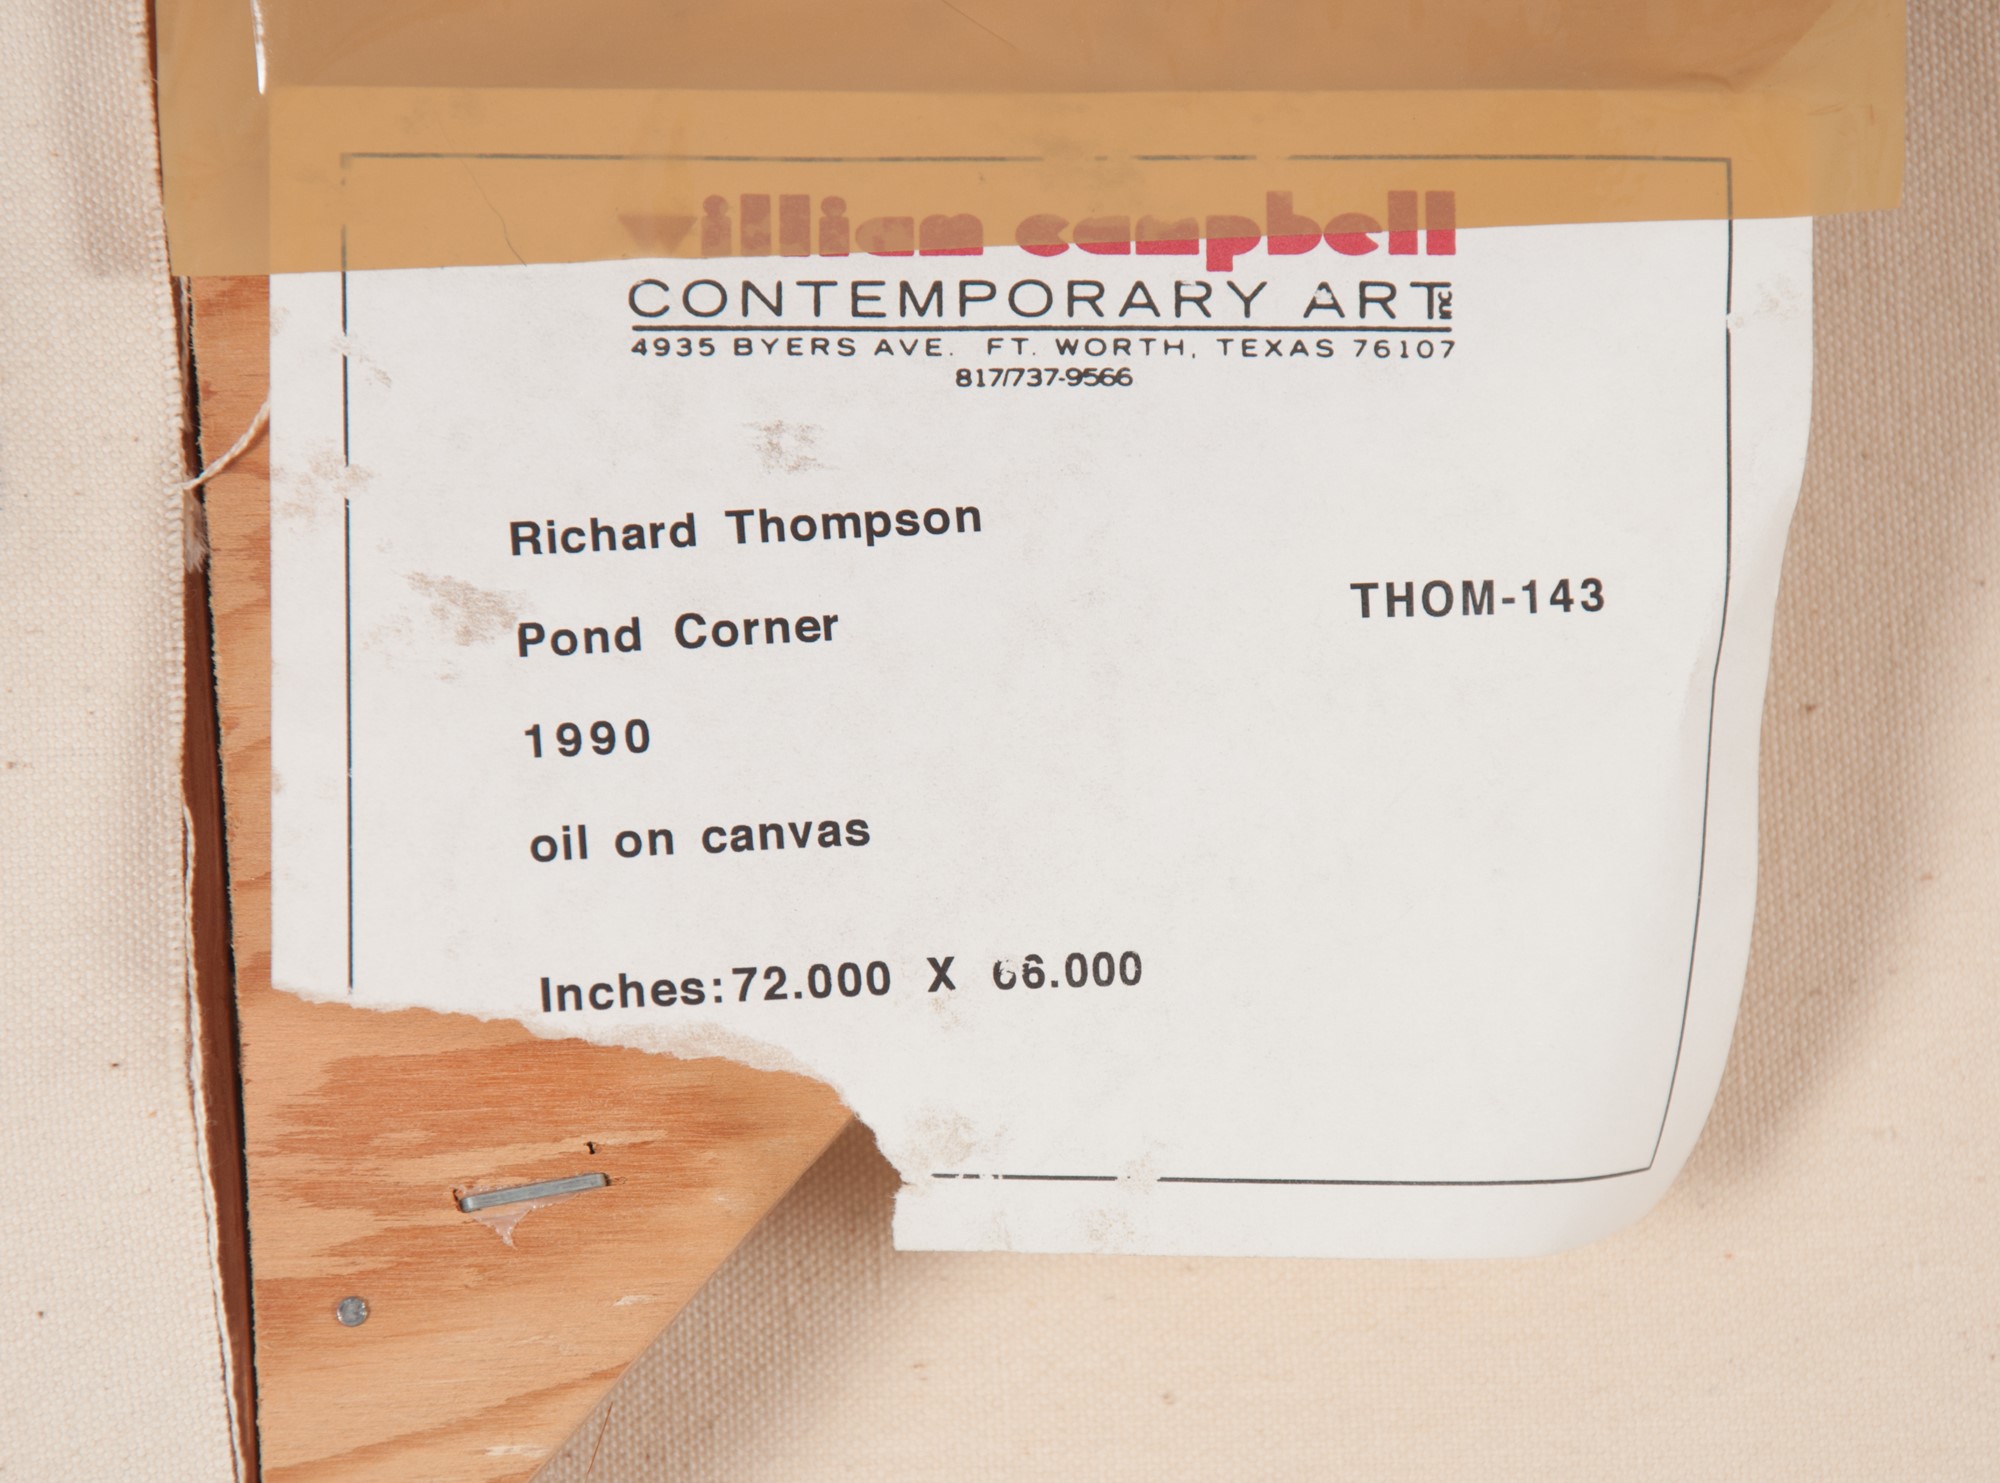 william campbell
CONTEMPORARY ART inc
4935 BYERS AVE. FT. WORTH, TEXAS 76107
817/737-9566
Richard Thompson
THOM-143
Pond Corner
1990
oil on canvas
Inches:72.000 X 66.000